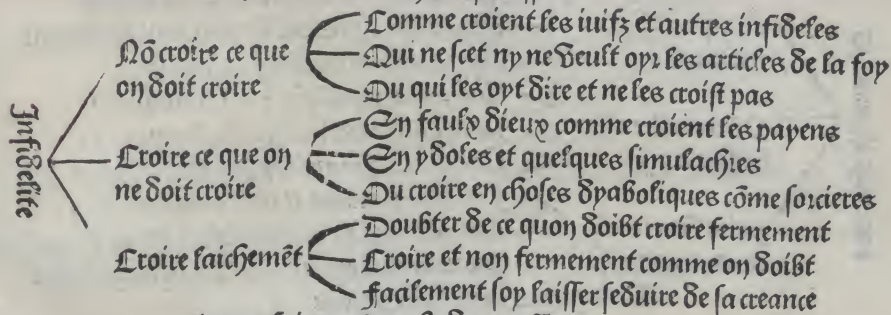 Infidelite
Nō croire ce que
on doit croire
Comme croient les iuifz et autres infideles
Qui ne scet ny ne veult oyr les articles de la foy
Ou qui les oyt dire et ne les croist pas
Croire ce que on
ne doit croire
En faulx dieux comme croient les payens
En ydoles et quelques simulachres
Ou croire en choses dyaboliques cōme sorcieres
Croire laichemēt
Doubter de ce quon doibt croire fermement
Croire et non fermement comme on doibt
Facilement soy laisser seduire de sa creance